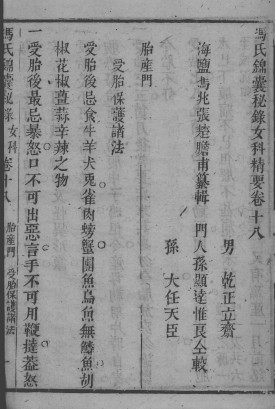 馮氏錦囊秘錄女科精要卷十八
海鹽馮兆張楚瞻甫纂輯 門人孫顯達惟良仝較
男 乾正立齋
孫 大任天臣
胎產門
受胎保護諸法
受胎後忌食牛羊犬兎雀肉螃蟹團魚烏魚無鱗魚胡
椒花椒薑蒜辛辣之物
一受胎後最忌暴怒口不可出惡言手不可用鞭撻蓋怒
馮氏錦囊秘錄 女科 卷十八 胎產門 受胎保護諸法 一